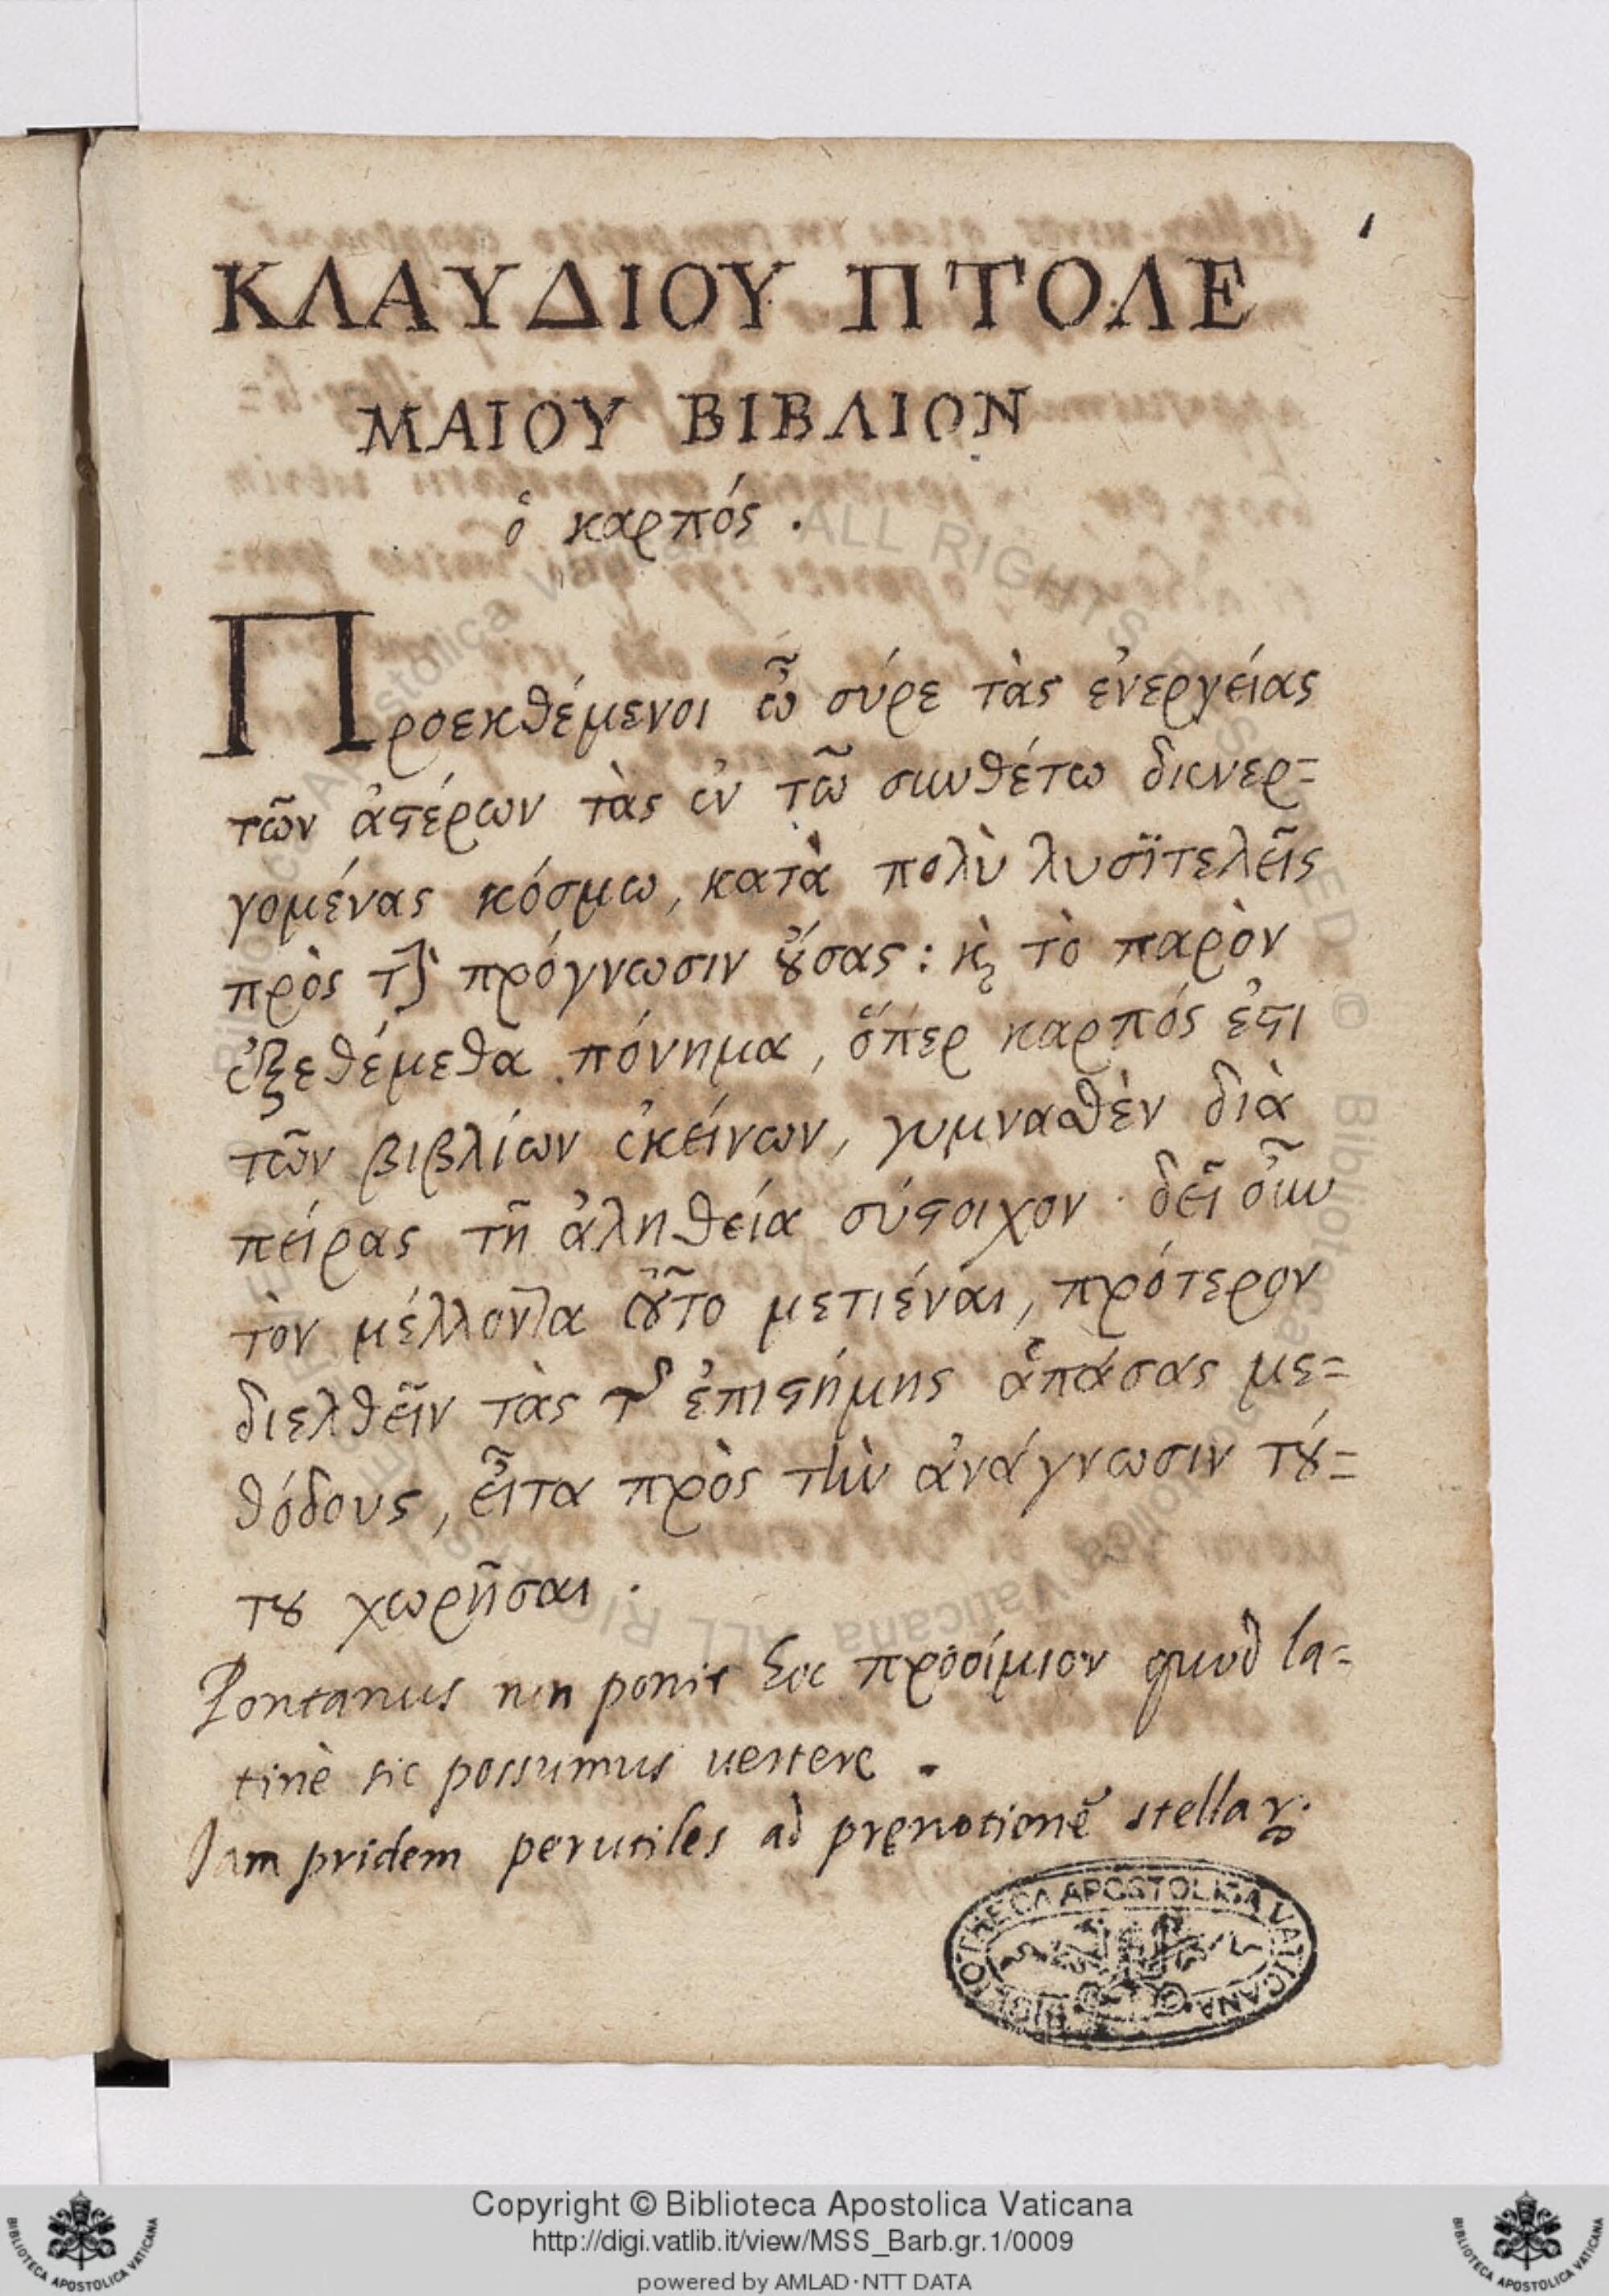 1
ΚΛΑΥΔΙΟΥ ΠΤΟΛΕ
ΜΑΙΟΥ ΒΙΒΛΙΟΝ
ὁ καρπός .
Προεκθέμενοι ὦ σύρε τὰς ἐνεργείας
τῶν ἀϛέρων τὰς ἐν τῶ συνθέτω διενερ=
γομένας κόσμω, κατὰ πολὺ λυσϊτελεῖς
πρὸς τὴν πρόγνωσιν ȣ̓́σας : κ̀ τὸ παρὸν
ἐξεθέμεθα πόνημα, ὅπερ καρπός ἐϛι
τῶν βιβλίων ἐκείνων, γυμνασθὲν διὰ
πείρας τῆ ἀληθεία σύϛοιχον · δεῖ οὖν
τὸν μέλλοντα τȣ͂το μετιέναι, πρότερον
διελθεῖν τὰς τῆς ἐπιϛήμης ἁπάσας με=
θόδους, εἶτα πρὸς τὴν ἀνάγνωσιν τȣ́=
τȣ χωρῆσαι .
Pontanus non ponit hoc προοίμιον quod la=
tinè sic possumus uertere .
Jam pridem perutiles ad pręnotionē stellaꝝ.
BIBLIOTHECA APOSTOLICA VATICANA
Copyright © Biblioteca Apostolica Vaticana
http://digi.vatlib.it/view/MSS_Barb.gr.1/0009
powered by AMLAD·NTT DATA
BIBLIOTECA APOSTOLICA VATICANA
BIBLIOTECA APOSTOLICA VATICANA